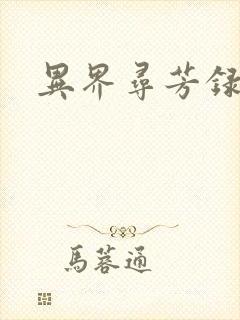 異界尋芳録
馬蓉通